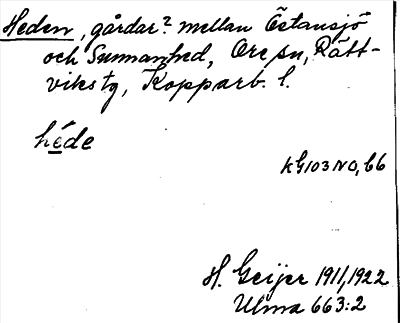 Heden, gårdar? mellan Östansjö
och Sunnanhed, Ore sn, Rätt-
viks tg, Kopparb. l.
hé̱de
KG103NO, 66
H. Geijer 1911, 1922
Ulma 663:2